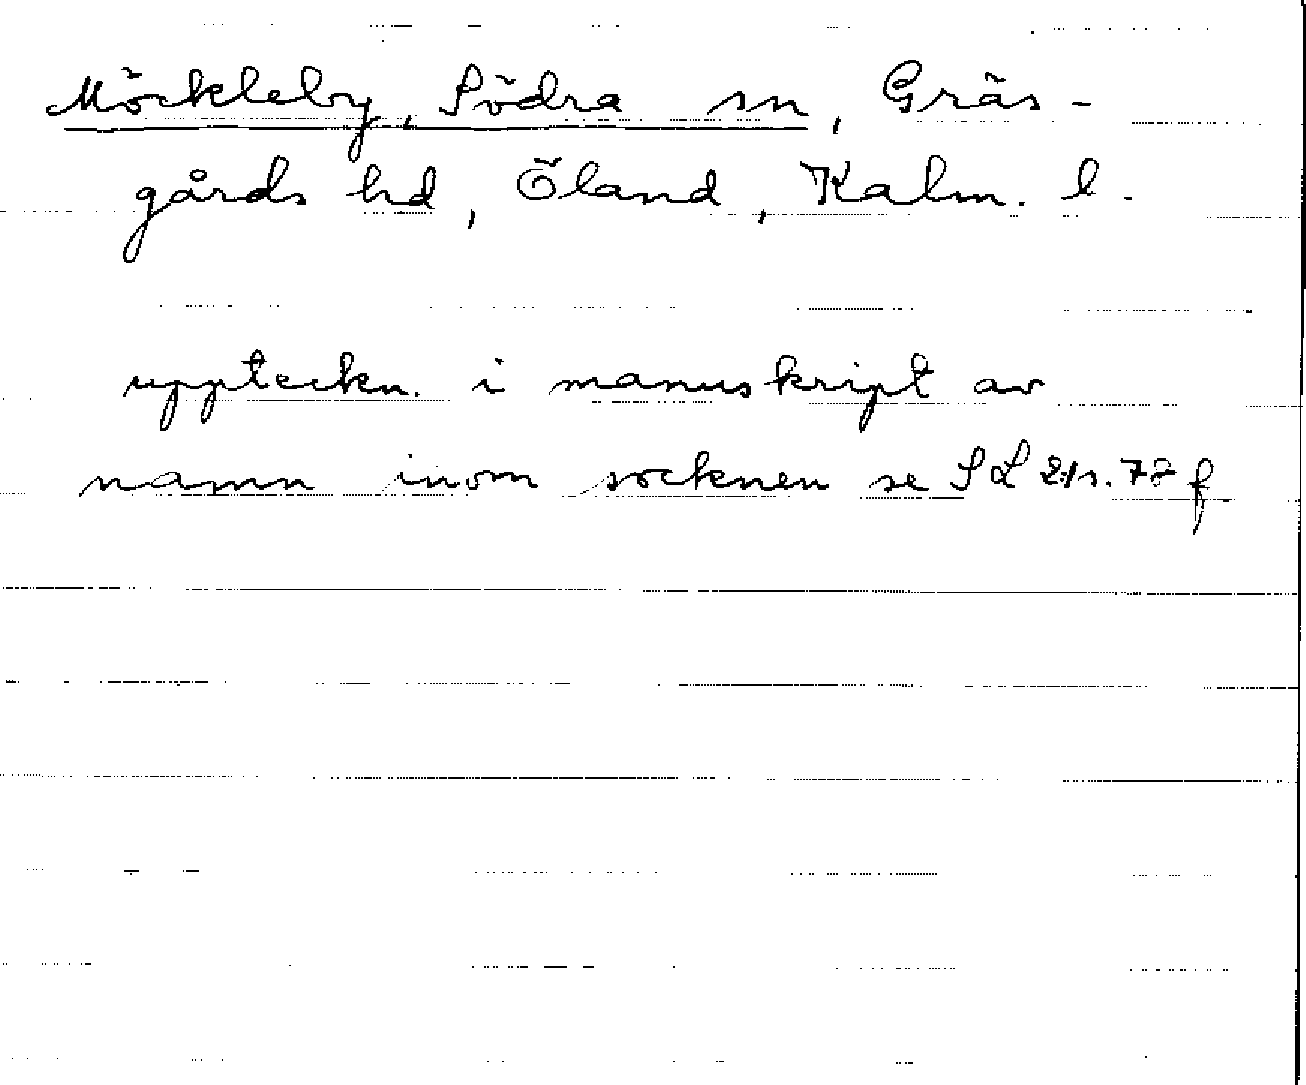 Möckleby, Södra sn, Gräs-
gårds hd, Öland, Kalm. l.
uppteckn. i manuskript av
namn inom socknen se SL 21 s. 78 f